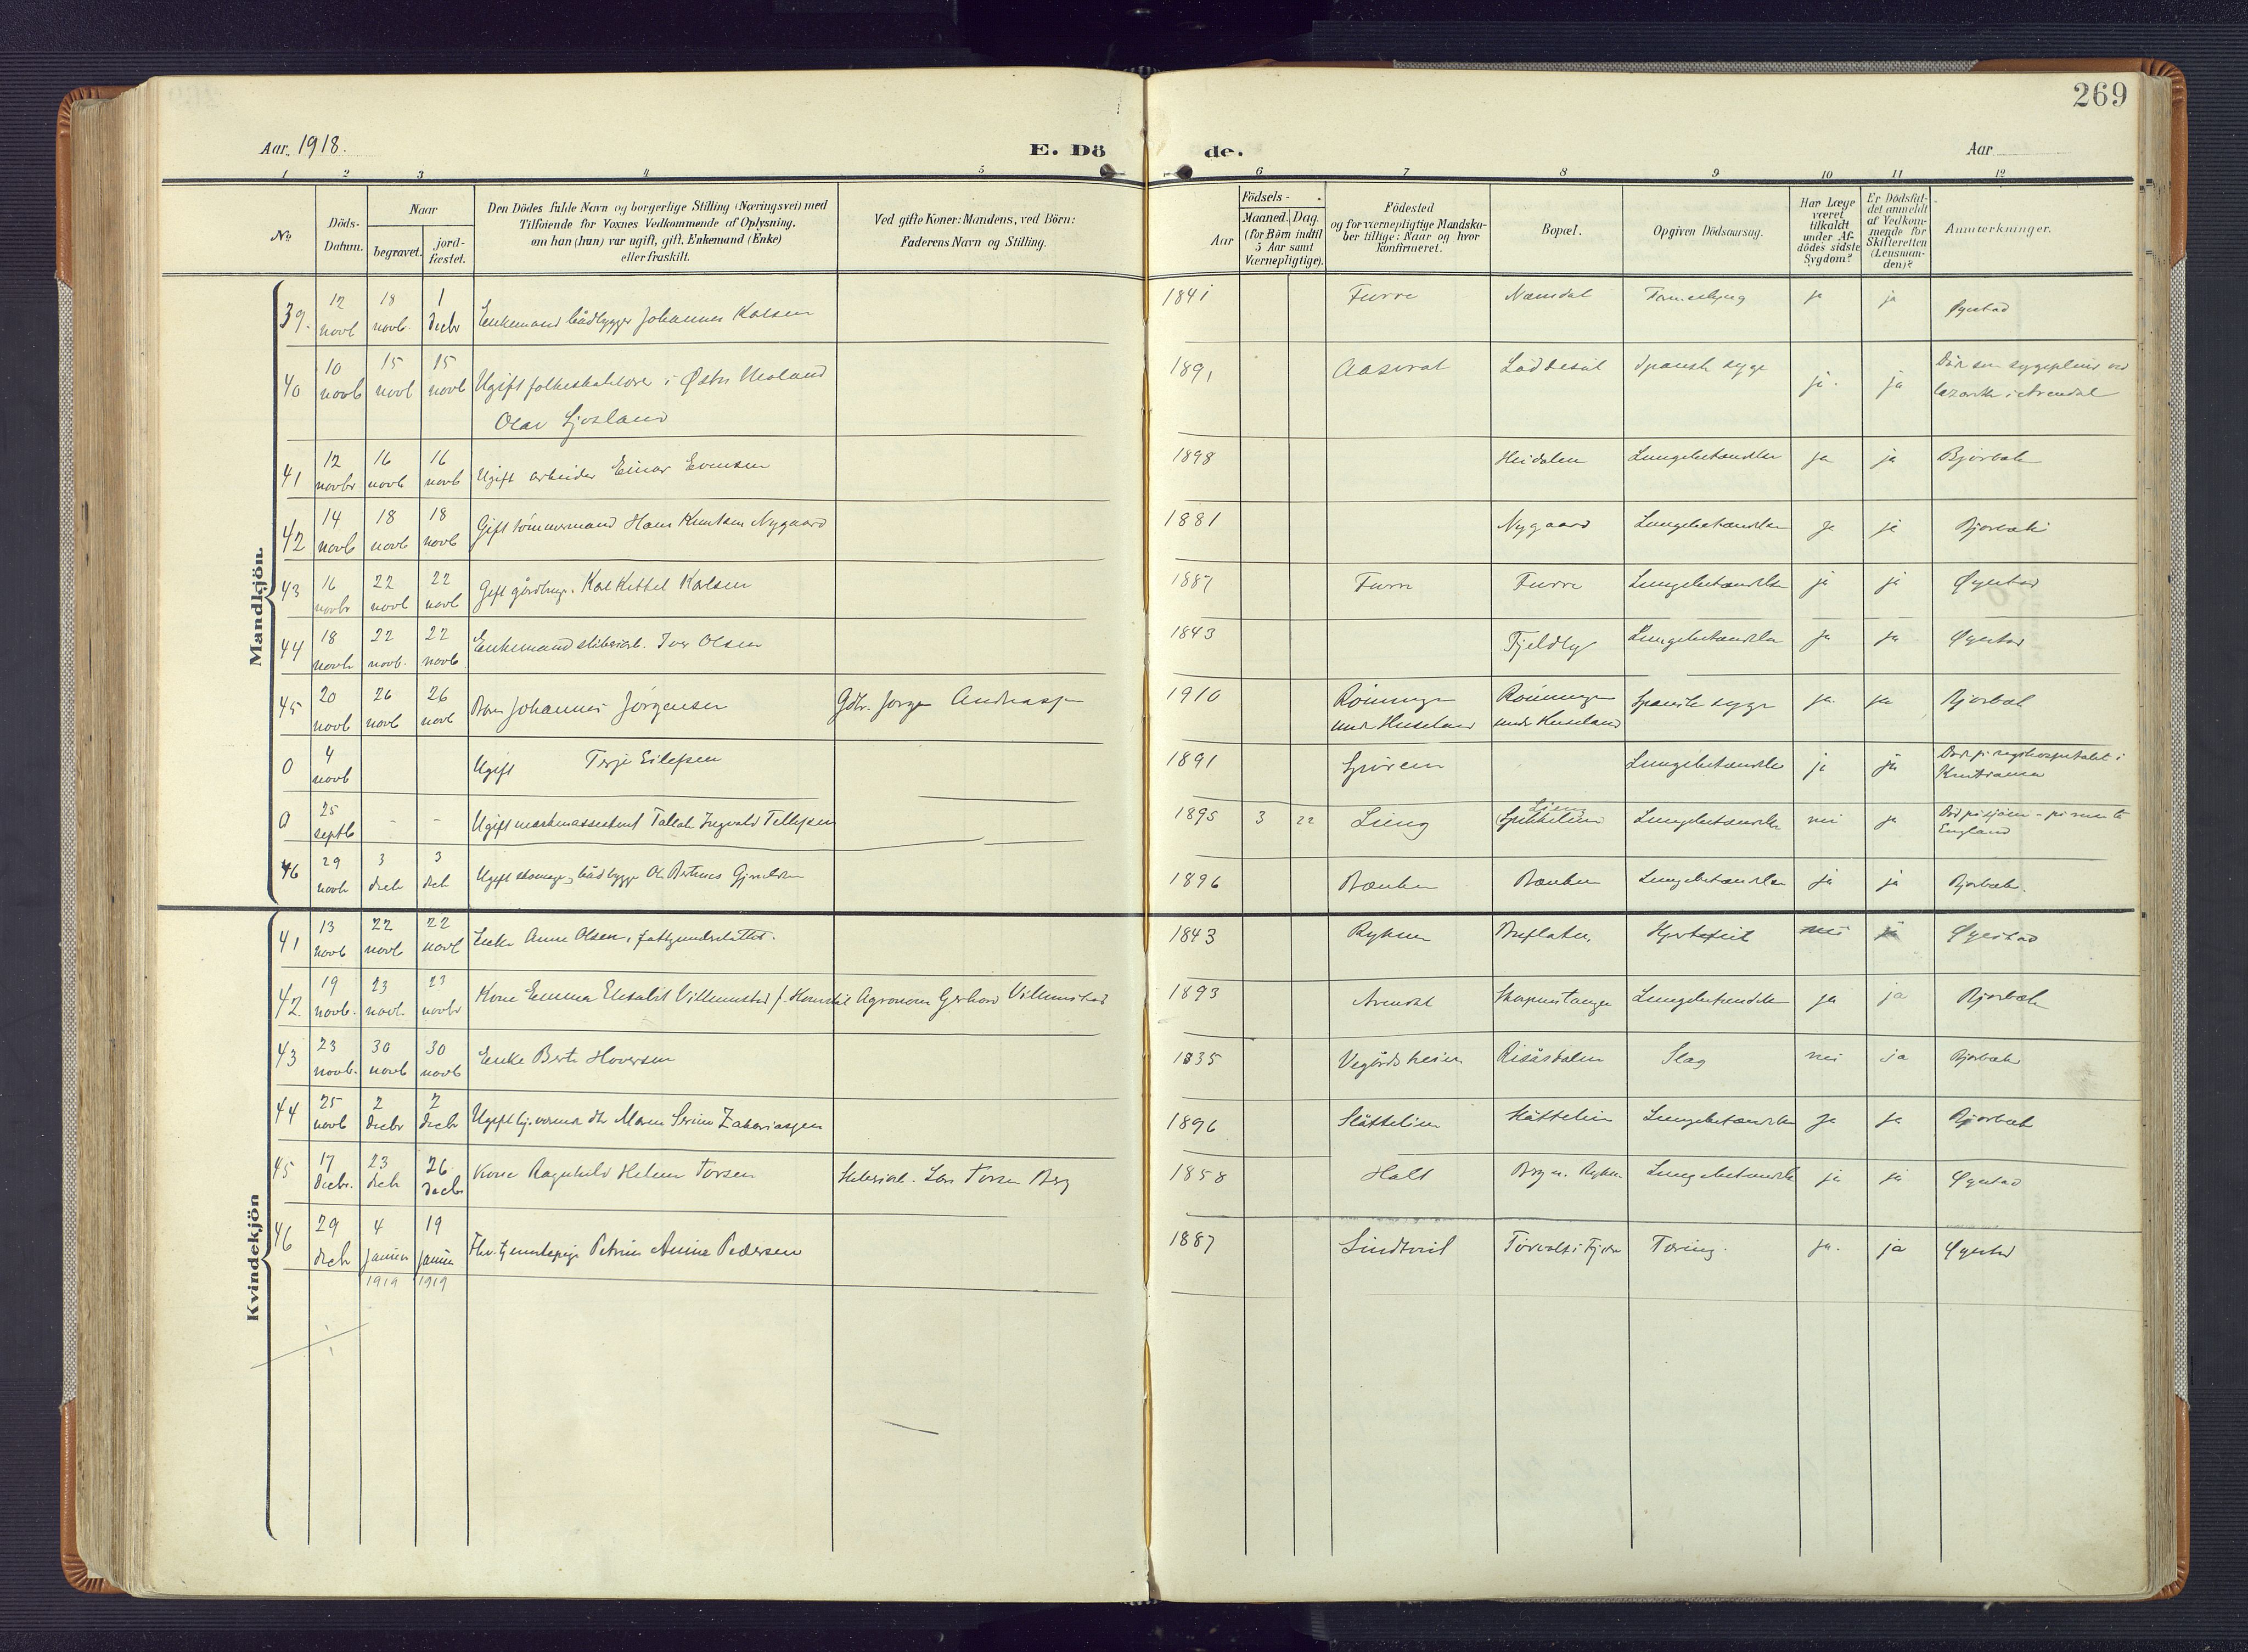 269
Aar 1918.
E. Dö
de.
Aar
1 2 3 4 5 6 7 8 9 10 11 12
No
Döds-
Datum.
Naar
begravet.
jord-
fæstet.
Den Dödes fulde Navn og borgerlige Stilling (Næringsvei) med
Tilföiende for Voxnes Vedkommende af Oplysning,
om han (hun) var ugift, gift, Enkemand (Enke)
eller fraskilt.
Ved gifte Koner: Mandens, ved Börn:
Faderens Navn og Stilling.
Födsels-
Aar
Maaned. Dag.
(for Börn indtil
5 Aar samt
Værnepligtige).
Födested
og for værnepligtige Mandska-
ber tillige: Naar og hvor
konfirmeret.
Bopæl.
Opgiven Dödsaarsag.
Har Læge
været
tilkaldt
under Af-
dödes sidste
Sygdom?
Er Dödsfal-
det anmeldt
af Vedkom-
mende for
Skifteretten
(Lensman-
den)?
Anmærkninger.
Mandkjön.
39. 12 novb 18 novb. 1 decbr Enkemand bådbygger Johannes Kalsen 1841 Furre Næmdal ja ja Øyestad
40 10 novb 15 novb 15 novb Ugift folkeskolelærer i Østre
Olav Ljosland 1891 Aaseral Løddesøl Spansk syge ja. ja Død som sygepleier ved
lazarett i Arendal
41 12 novbr 16 novb 16 novb Ugift arbeider Einar Evensen 1898 Heidalen Lungebetændelse ja ja Bjorbæk
42 14 novb 18 novb 18 novb Gift tömmermand Hans Knutsen Nygaard 1881 Nygaard Lungebetændelse ja ja Bjorbæk
43 16 novbr 22 novb 22 novb Gift gårdbrug. Karl Kittel Kalsen 1887 Furre Furre Lungebetændelse ja ja Øyestad
44 18 novb 22 novb. 22 novb Enkemand sliberiarb. Iver Olsen 1843 Fjeldly Lungebetændelse ja ja Øyestad
45 20 novb 26 novb 26 novb Barn Johannes Jörgensen Gdbr. Jörgen Andreassen 1910 Rönningen
under Huseland Rönningen
under Huseland Spanske syge ja. ja Bjorbæk
0 4 novb Ugift Terje Eilefsen 1891 Lungebetændelse ja ja Død på rigshospitalet i
Kristiania
0 25 septb - - Ugift maskinassistent Tallak Ingvald Tellefsen 1895 3 22 Lieng Lieng Lungebetændelse nei ja Død på sjöen - på reise til
England
46 29 novb 3 decb 3 decb Ugift bådbygger 1896 Bænken Bænken Lungebetændelse ja ja Bjorbæk.
Kvindekjön
41 13 novb 22 novb 22 novb Enke Anne Olsen, fattigunderstöttet. 1843 Rykene Hjertefeil nei ja Øyestad
42 19 novb. 23 novb. 23 novbr Kone Emma Elisabet Villumstad f. Agronom Gerhard Villumstad 1893 Arendal Lungebetændelse ja ja Bjorbæk
43 23 novb. 30 novb 30 novb Enke Berte Hoversen 1835 Vegårdsheien Risåsdalen Slag nei ja Bjorbæk
44 25 novb 2 decbr 2 decbr Ugift Maren Serine Zakariassen 1896 Slåttelien Slåttelien Lungebetændelse ja ja Bjorbæk
45 17 decbr. 23 decb 26 decb Kone Ragnhild Helene Torsen Sliberiarb. Lars Torsen Berg 1858 Holt Lungebetændelse ja ja Øyestad
46 29 decb 4 januar 1919 19 januar 1919 Petrine Amine Pedersen 1887 Lindtveit Tæring. ja. ja Øyestad